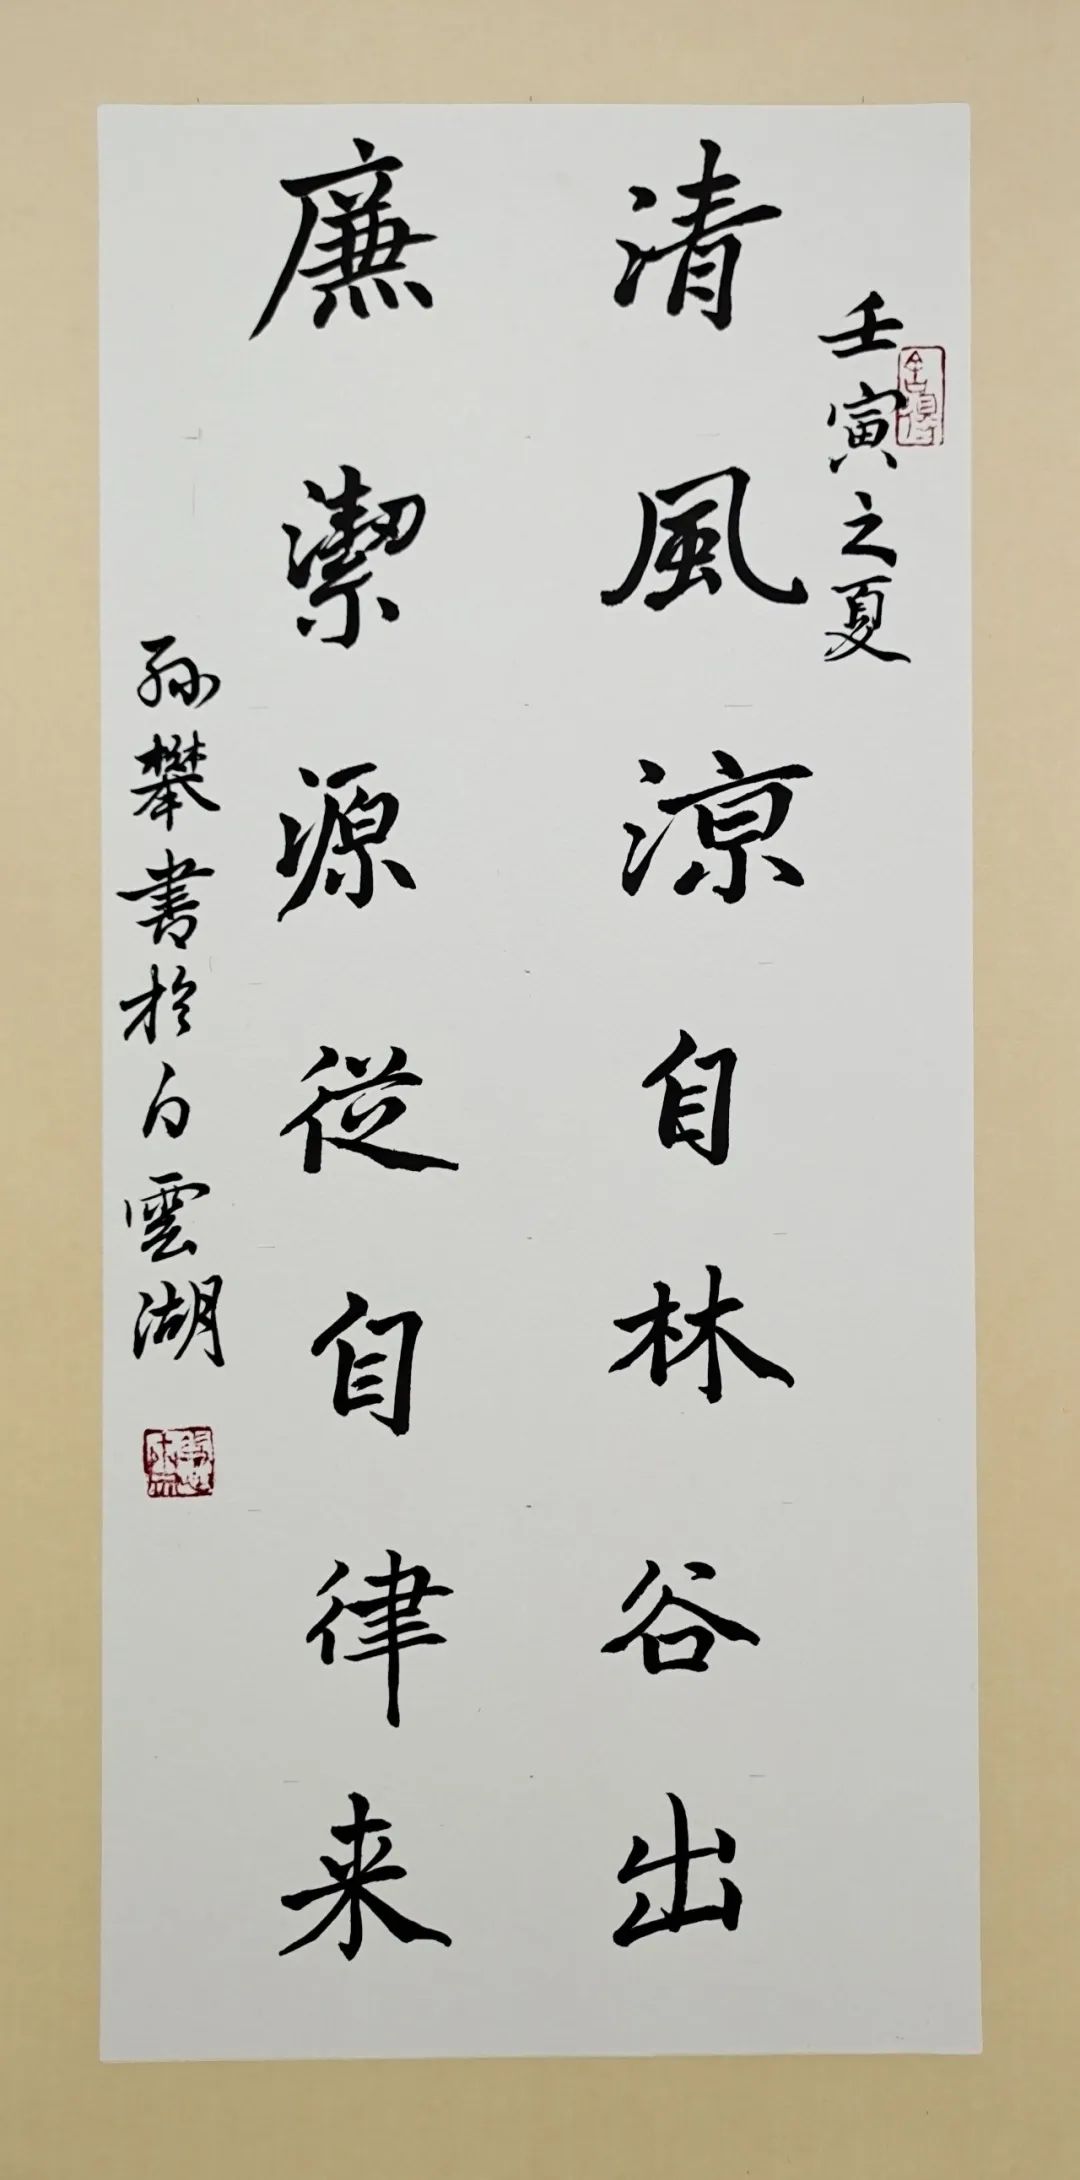 壬寅之夏
清風涼自林谷出
廉潔源從自律来
孫攀書於白雲湖
舍得